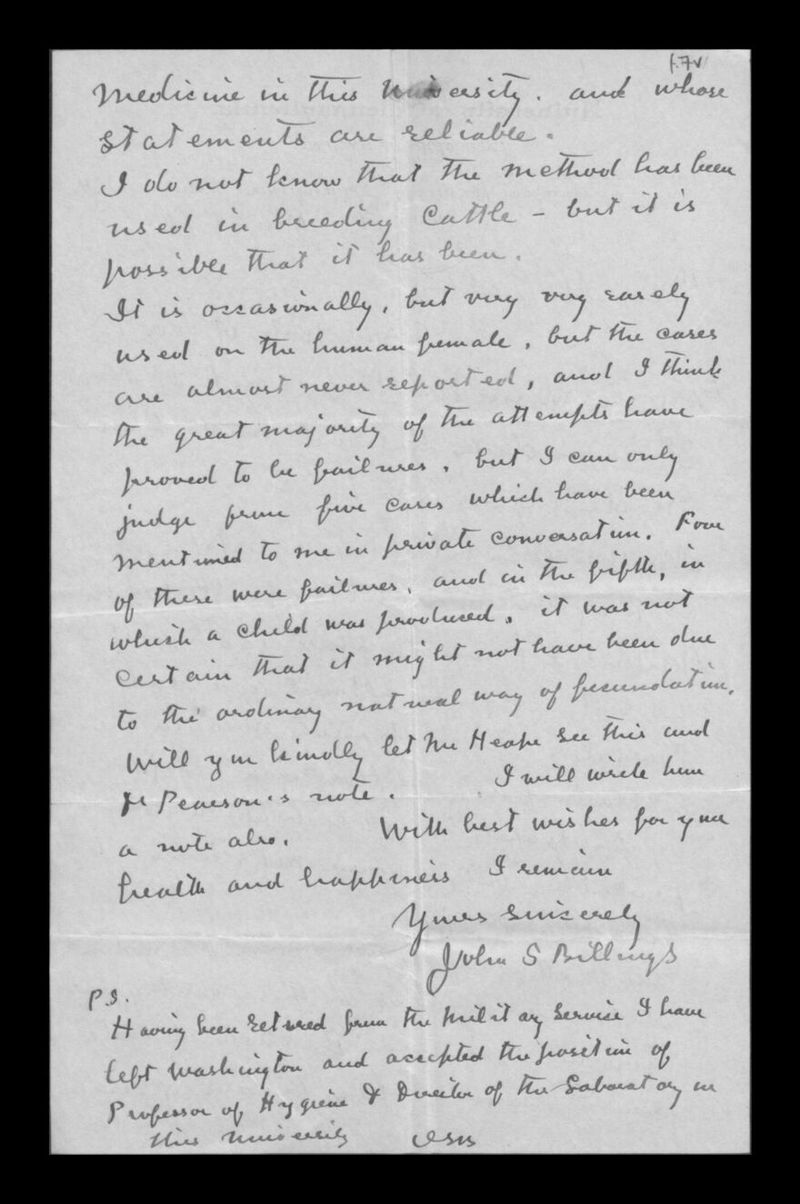 17v
Medicine in this University. and whose
statements are reliable.
I do not know that the method has been
used in breeding Cattle - but it is
possible that it has been.
It is occasionally, but very very rarely
used on the human female, but the cases
are almost never reported, and I think
the great majority of the attempts have
proved to be failures, but I can only
judge from five cases which have been
mentioned to me in private conversation. Four
of these were failures, and in the fifth, in
which a child was produced, it was not
certain that it might not have been due
to the ordinary natural way of fecundation.
Will you kindly let Mr Heape see this and
Dr Pearson's note. I will write him
a note also. With best wishes for your
health and happiness I remain
Yours sincerely
John S Billings
P.S.
Having been retired from the Military Service I have
left Washington and accepted the position of
Professor of Hygiene & Director of the Laboratory in
this University JSB